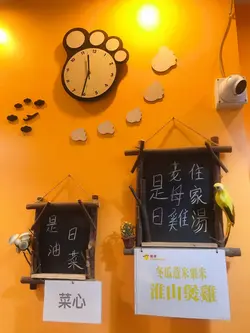 是日
油菜
菜心
是日
老母雞
住家湯
冬瓜薏米粟米
淮山煲雞